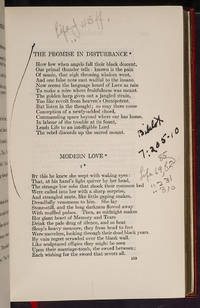 THE PROMISE IN DISTURBANCE*
How low when angels fall their black descent,
Our primal thunder tells: known is the pain
Of music, that nigh throning wisdom went,
And one false note cast wailful to the insane.
Now seems the language heard of Love as rain
To make a mire where fruitfulness was meant.
The golden harp gives out a jangled strain,
Too like revolt from heaven's Omnipotent.
But listen in the thought; so may there come
Conception of a newly-added chord,
Commanding space beyond where ear has home.
In labour of the trouble at its fount,
Leads Life to an intelligible Lord
The rebel discords up the sacred mount.
MODERN LOVE*
I
By this he knew she wept with waking eyes:
That, at his hand's light quiver by her head,
The strange low sobs that shook their common bed
Were called into her with a sharp surprise,
And strangled mute, like little gaping snakes,
Dreadfully venomous to him. She lay
Stone-still, and the long darkness flowed away
With muffled pulses. Then, as midnight makes
Her giant heart of Memory and Tears
Drink the pale drug of silence, and so beat
Sleep's heavy measure, they from head to feet
Were moveless, looking through their dead black years,
By vain regret scrawled over the blank wall.
Like sculptured effigies they might be seen
Upon their marriage-tomb, the sword between;
Each wishing for the sword that severs all.